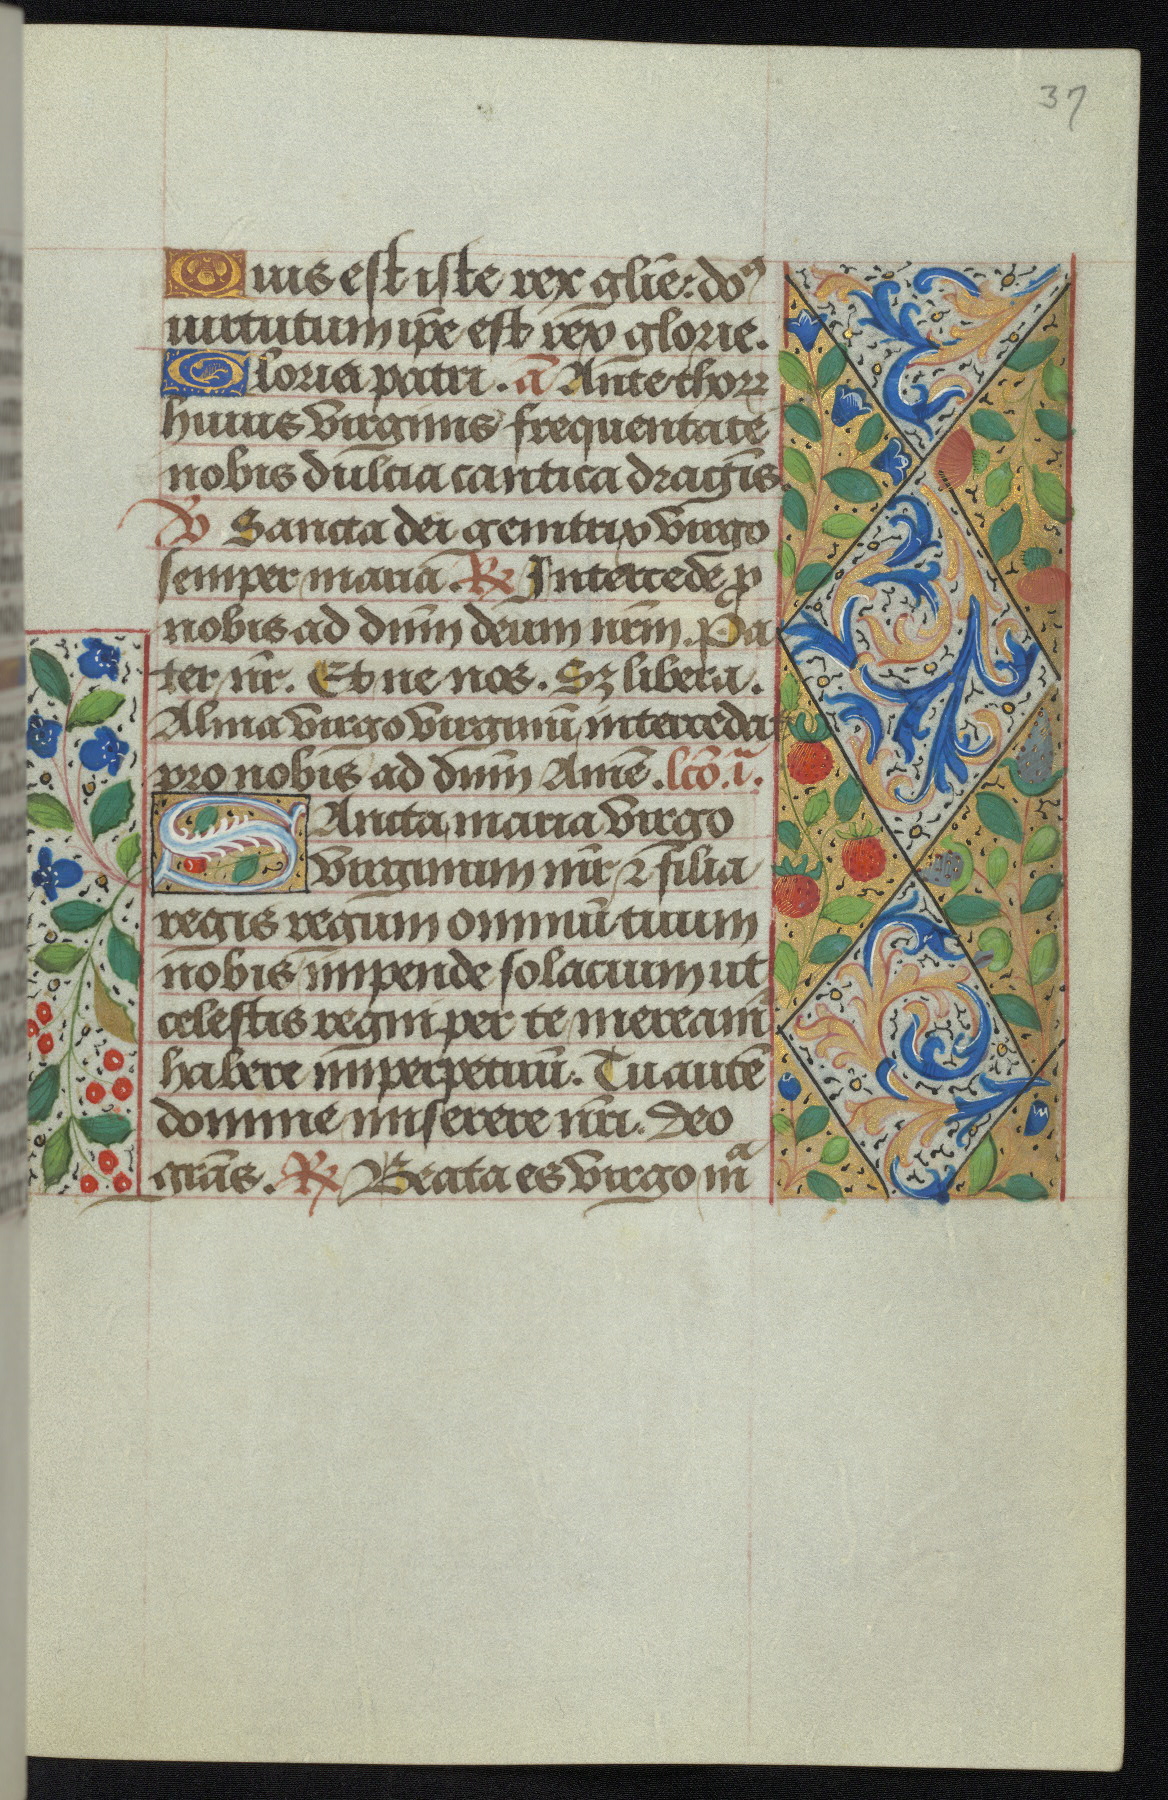 37
Quis est iste rex glīe: do9
uirtutum ip̄e est rex glorie.
Gloria patri. a᷉ An̄te thorū
huius virginis frequentate
nobis dulcia cantica dragīs.
V Sancta dei genitrix virgo
semper maria. R Intercede p̱
nobis ad dn̄m deum nr̄m. Pa
ter nr̄. Et ne nos. Sz libera.
Alma virgo virginū intercedat
pro nobis ad dn̄m Amē. lcō.i.
Sancta maria virgo
virginum mr̄ ⁊ filia
regis regum omniū tuum
nobis impende solacium ut
celestis regni per te mereamr̄
habere imperpetuū. Tu autē
domine miserere nr̄i. Deo
grās. R Beata es virgo mᵃ